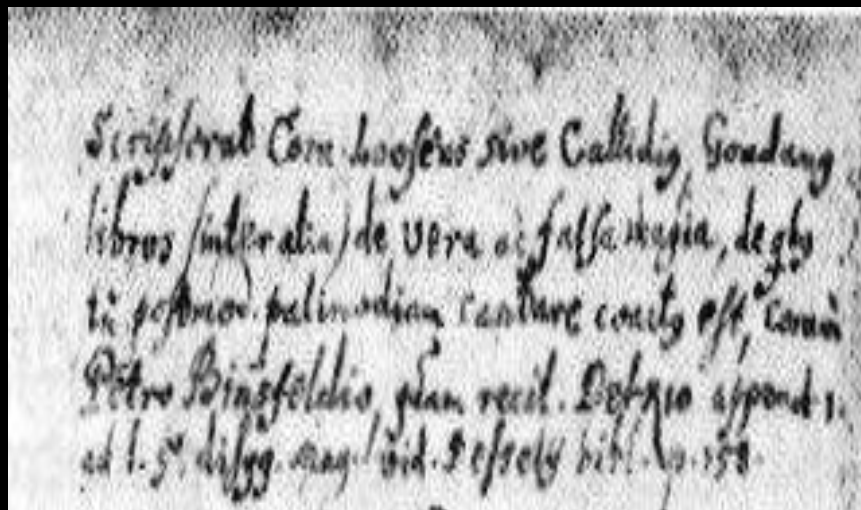 Scripserat Corn. Loosëus sive Callidig, Goudang
libros (inter alia) de vera ac falsa magia, de qbg
tn̄ postmod. palinodiam cantare coactg est, coram
Petro Binsfeldio, quam recit. Delrio append. 1.
ad l. 5. disqq. mag. vid. bibl. p. 158.